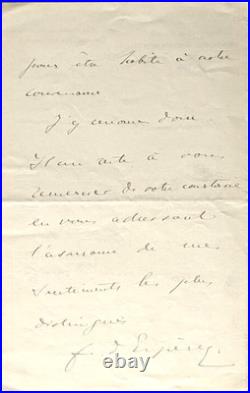 pour être habité à notre
convenance
J'y renonce donc.
Il me reste à vous
remercier de votre
en vous adressant
l'assurance de mes
sentiments les plus
distingués
f.